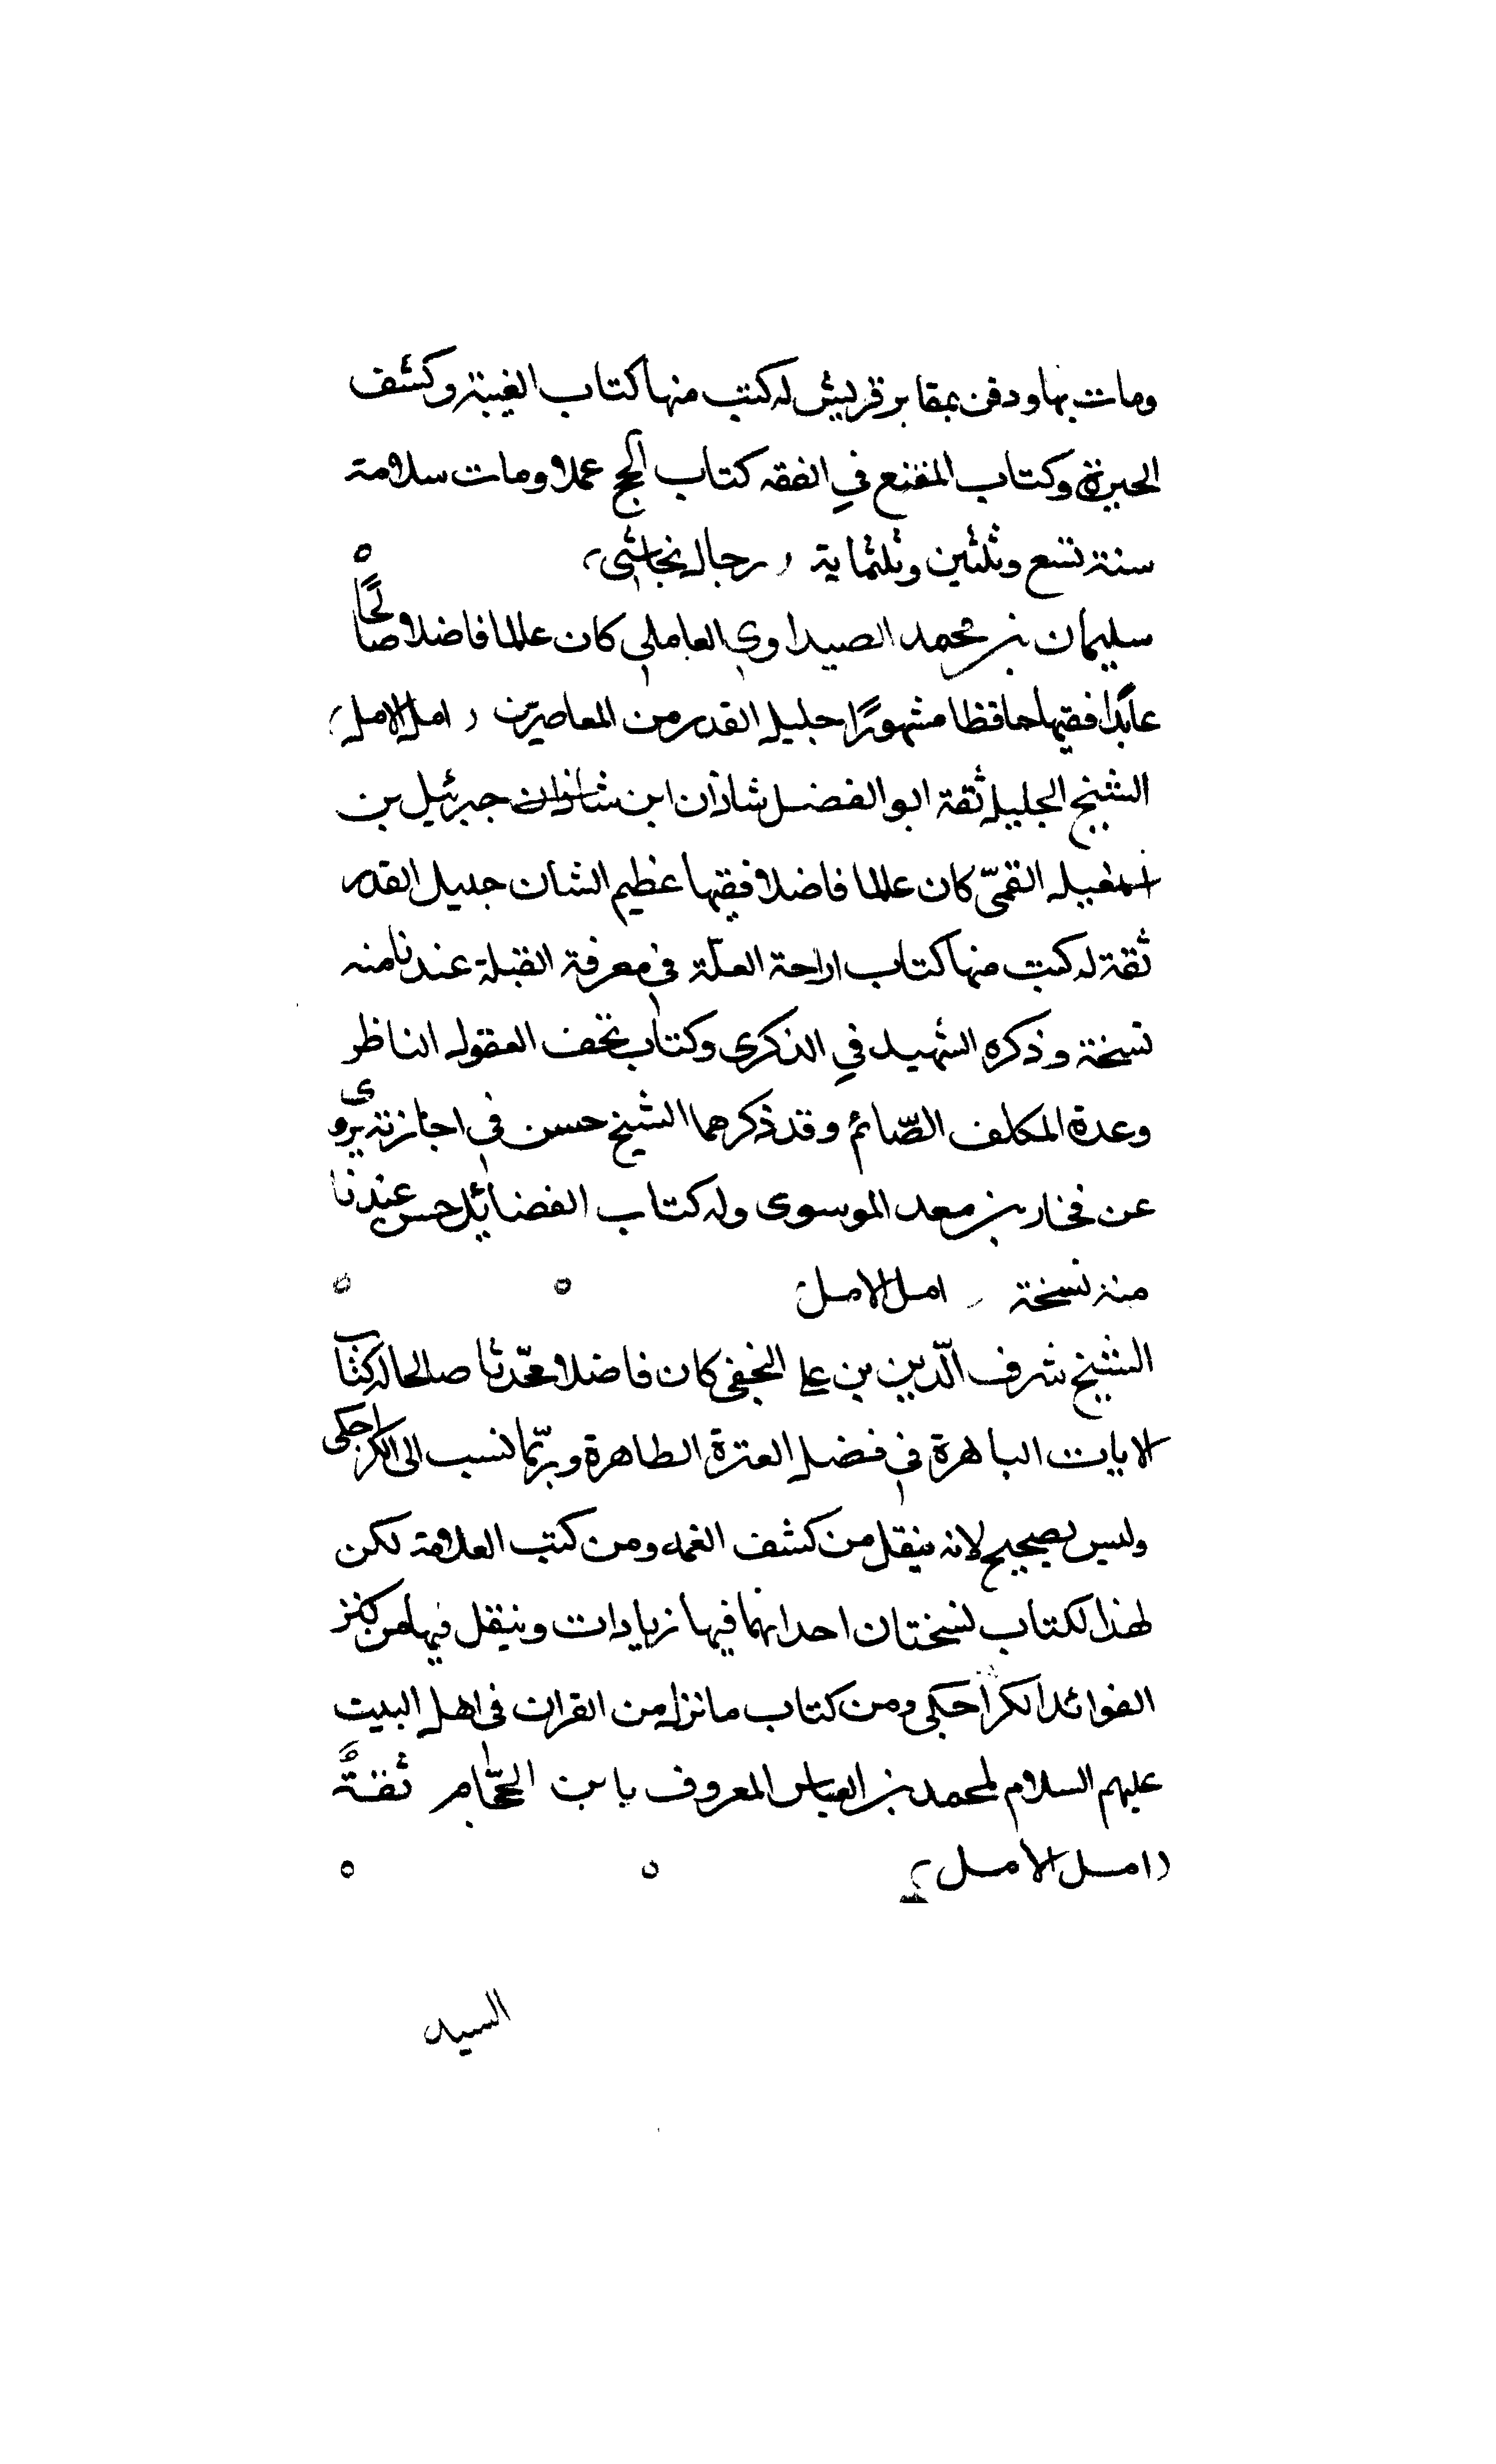 ومات بها ودفن بمقابر قريش له كتب منها كتاب الغيبة وكشف
الحيرة وكتاب المقنع في الفقه كتاب الحج عملا ومات سلامة
سنة تسع وثلثين وثلثماية (رجال نجاشى)
سليمان بن محمد الصيداوى العاملى كان عالما فاضلا صالحًا
عابدًا فقيها حافظا مشهورًا جليل القدر من المعاصرين (امل الامل)
الشيخ الجليل ثقة ابو الفضل شاذان ابن شاذان جبرئيل بن
اسمعيل القمّى كان عالما فاضلا فقيها عظيم الشان جليل القدر
ثقة له كتب منها كتاب ازاحة العلّة فى معرفة القبلة عندنا منه
نسخة وذكره الشهيد في الذكرى وكتاب تحف العقول الناظر
وعدة المكلف الصّائم وقد ذكرهما الشيخ حسن فى اجازته يروى
عن فخار بن معد الموسوى وله كتاب الفضائل حسن عندنا
منه نسخة امل الامل
الشيخ شرف الّدين بن على النجفى كان فاضلا محّدثا صالحا له كتاب
الايات الباهرة فى فضل العترة الطاهرة وربّما نسب الى الكراجكى
وليس بصحيح لانه ينقل من كشف الغمه ومن كتب العلامة لكن
لهذا لكتاب نسختان احدانهما فيها زيادات وينقل فيها من كنز
الفوائد الكراجكى ومن كتاب ما نزل من القران فى اهل البيت
عليهم السلام لمحمد بن العباس المعروف بابن الحجّام ثقةٌ
(امل الامل)
السيد